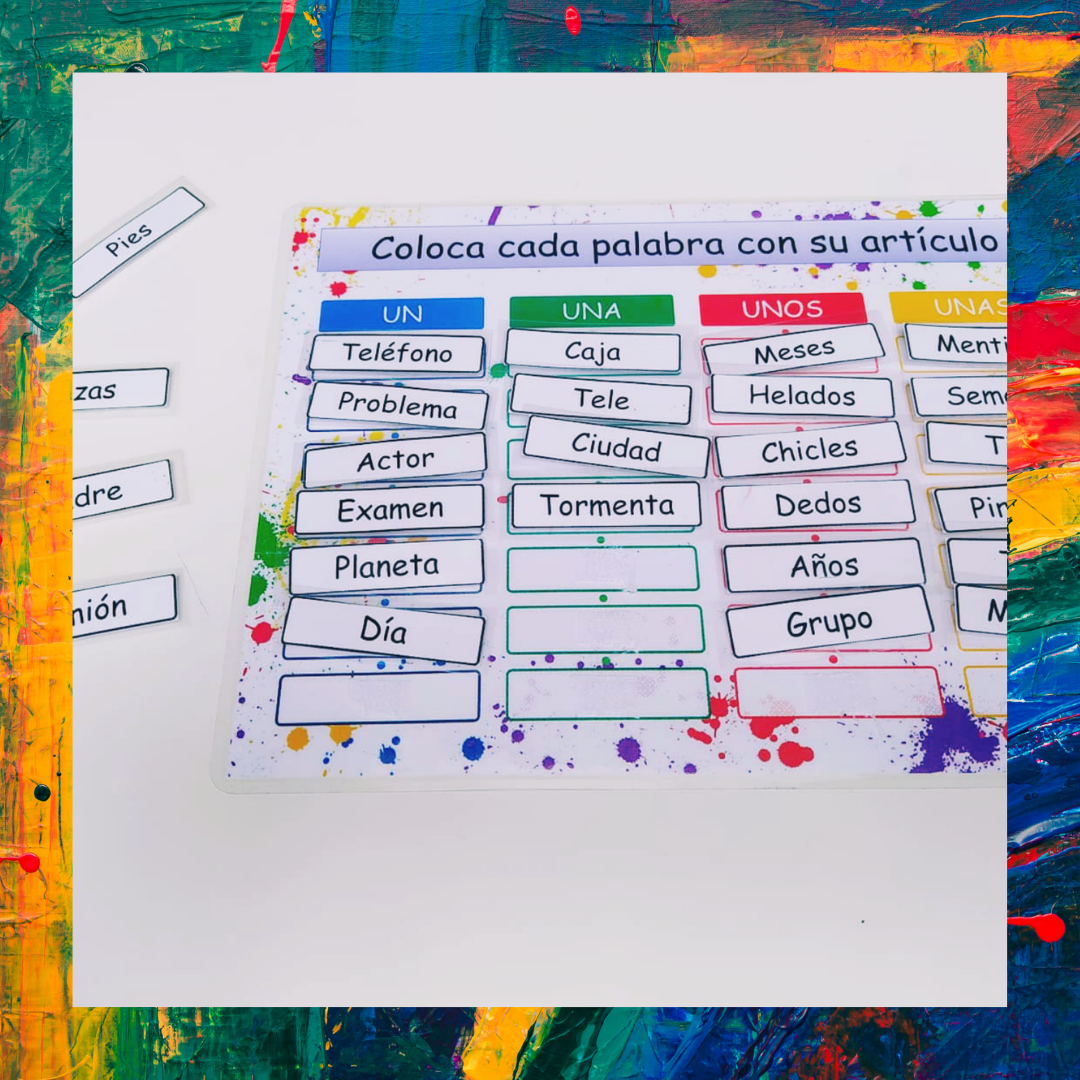 Pies
zas
dre
nión
Coloca cada palabra con su artículo
UN
Teléfono
Problema
Actor
Examen
Planeta
Día
UNA
Caja
Tele
Ciudad
Tormenta
UNOS
Meses
Helados
Chicles
Dedos
Años
Grupo
UNAS
Menti
Sem
T